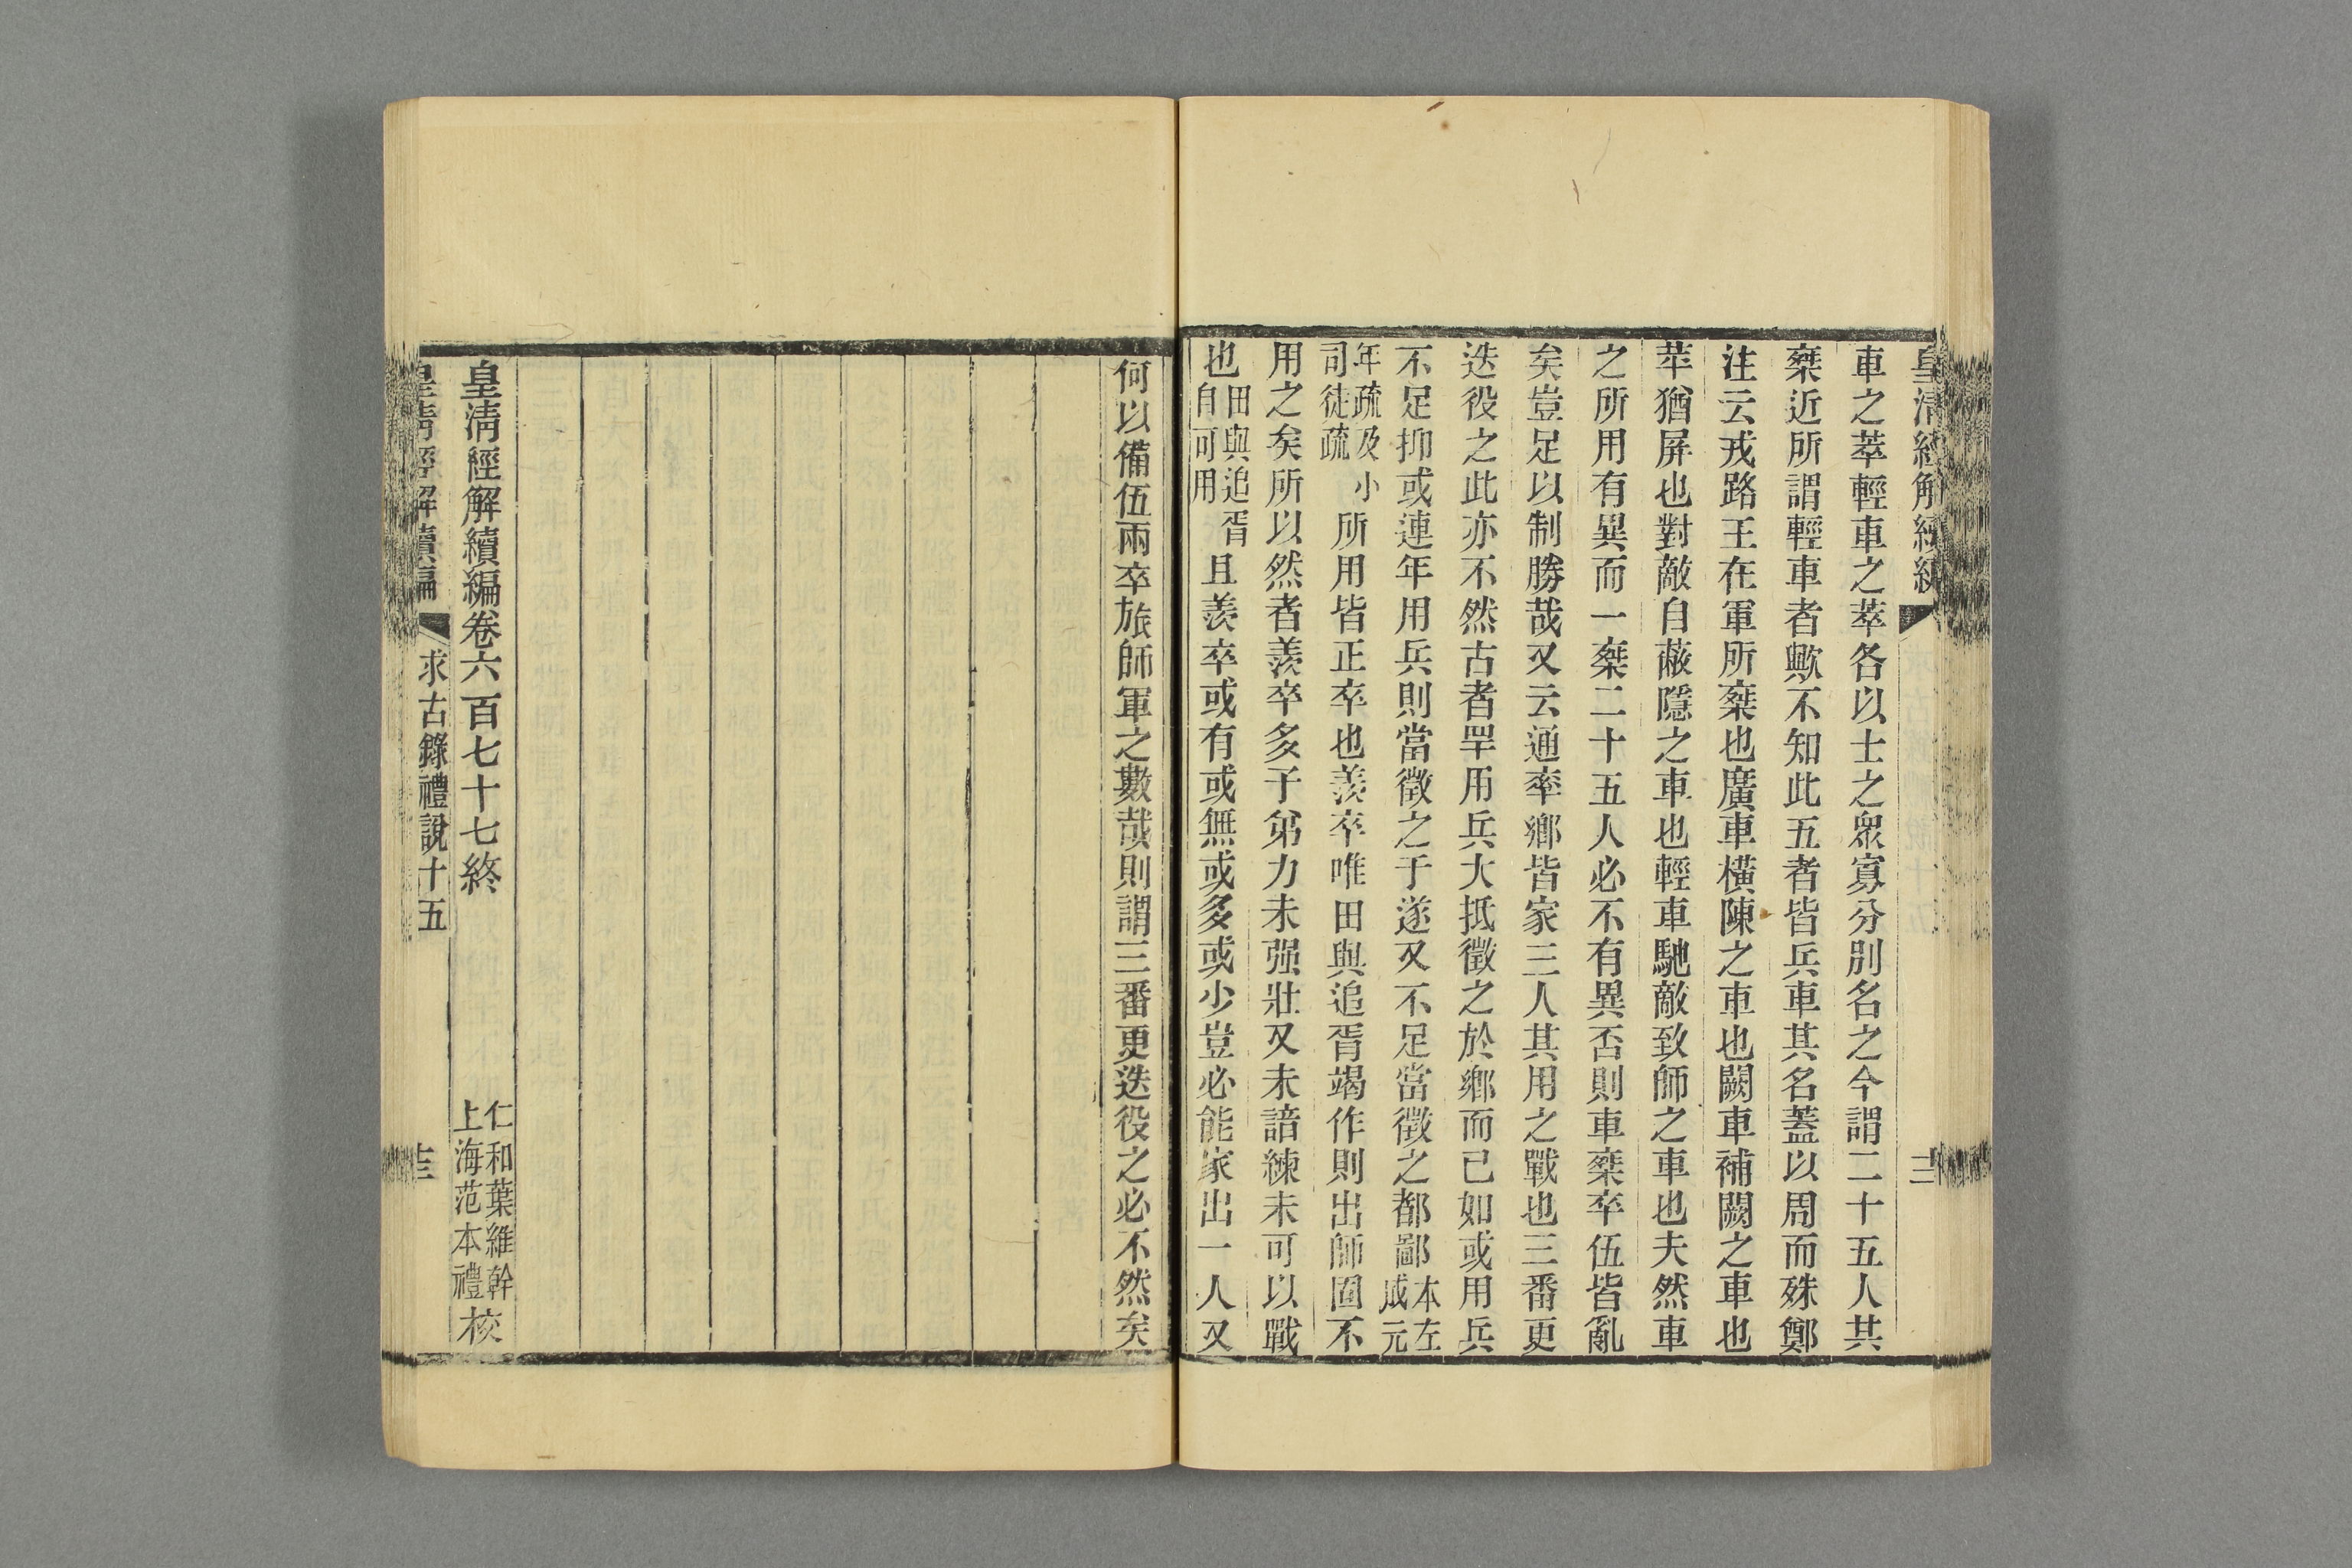 皇清經解續編
三
車之萃輕車之萃各以士之眾寡分別名之今謂二十五人其
椉近所謂輕車者歟不知此五者皆兵車其名蓋以周而殊鄭
注云戎路王在軍所椉也廣車橫陳之車也闕車補闕之車也
苹猶屏也對敵自蔽隱之車也輕車馳敵致師之車也夫然車
之所用有異而一椉二十五人必不有異否則車椉卒伍皆亂
矣豈足以制勝哉又云通率鄉皆家三人其用之戰也三番更
迭役之此亦不然古者罕用兵大抵徵之於鄉而已如或用兵
不足抑或連年用兵則當徵之于遂又不足當徵之都鄙本左成元
年疏及小司徒疏所用皆正卒也羨卒唯田與追胥竭作則出師固不
用之矣所以然者羨卒多子弟力未强壯又未諳練未可以戰
也田與追胥自可用且羨卒或有或無或多或少豈必能家出一人又
何以備伍兩卒旅師軍之數哉則謂三番更迭役之必不然矣
皇清經解續編卷六百七十七終
仁和葉維幹
上海范本禮
校
皇清經解續編
求古錄禮說十五